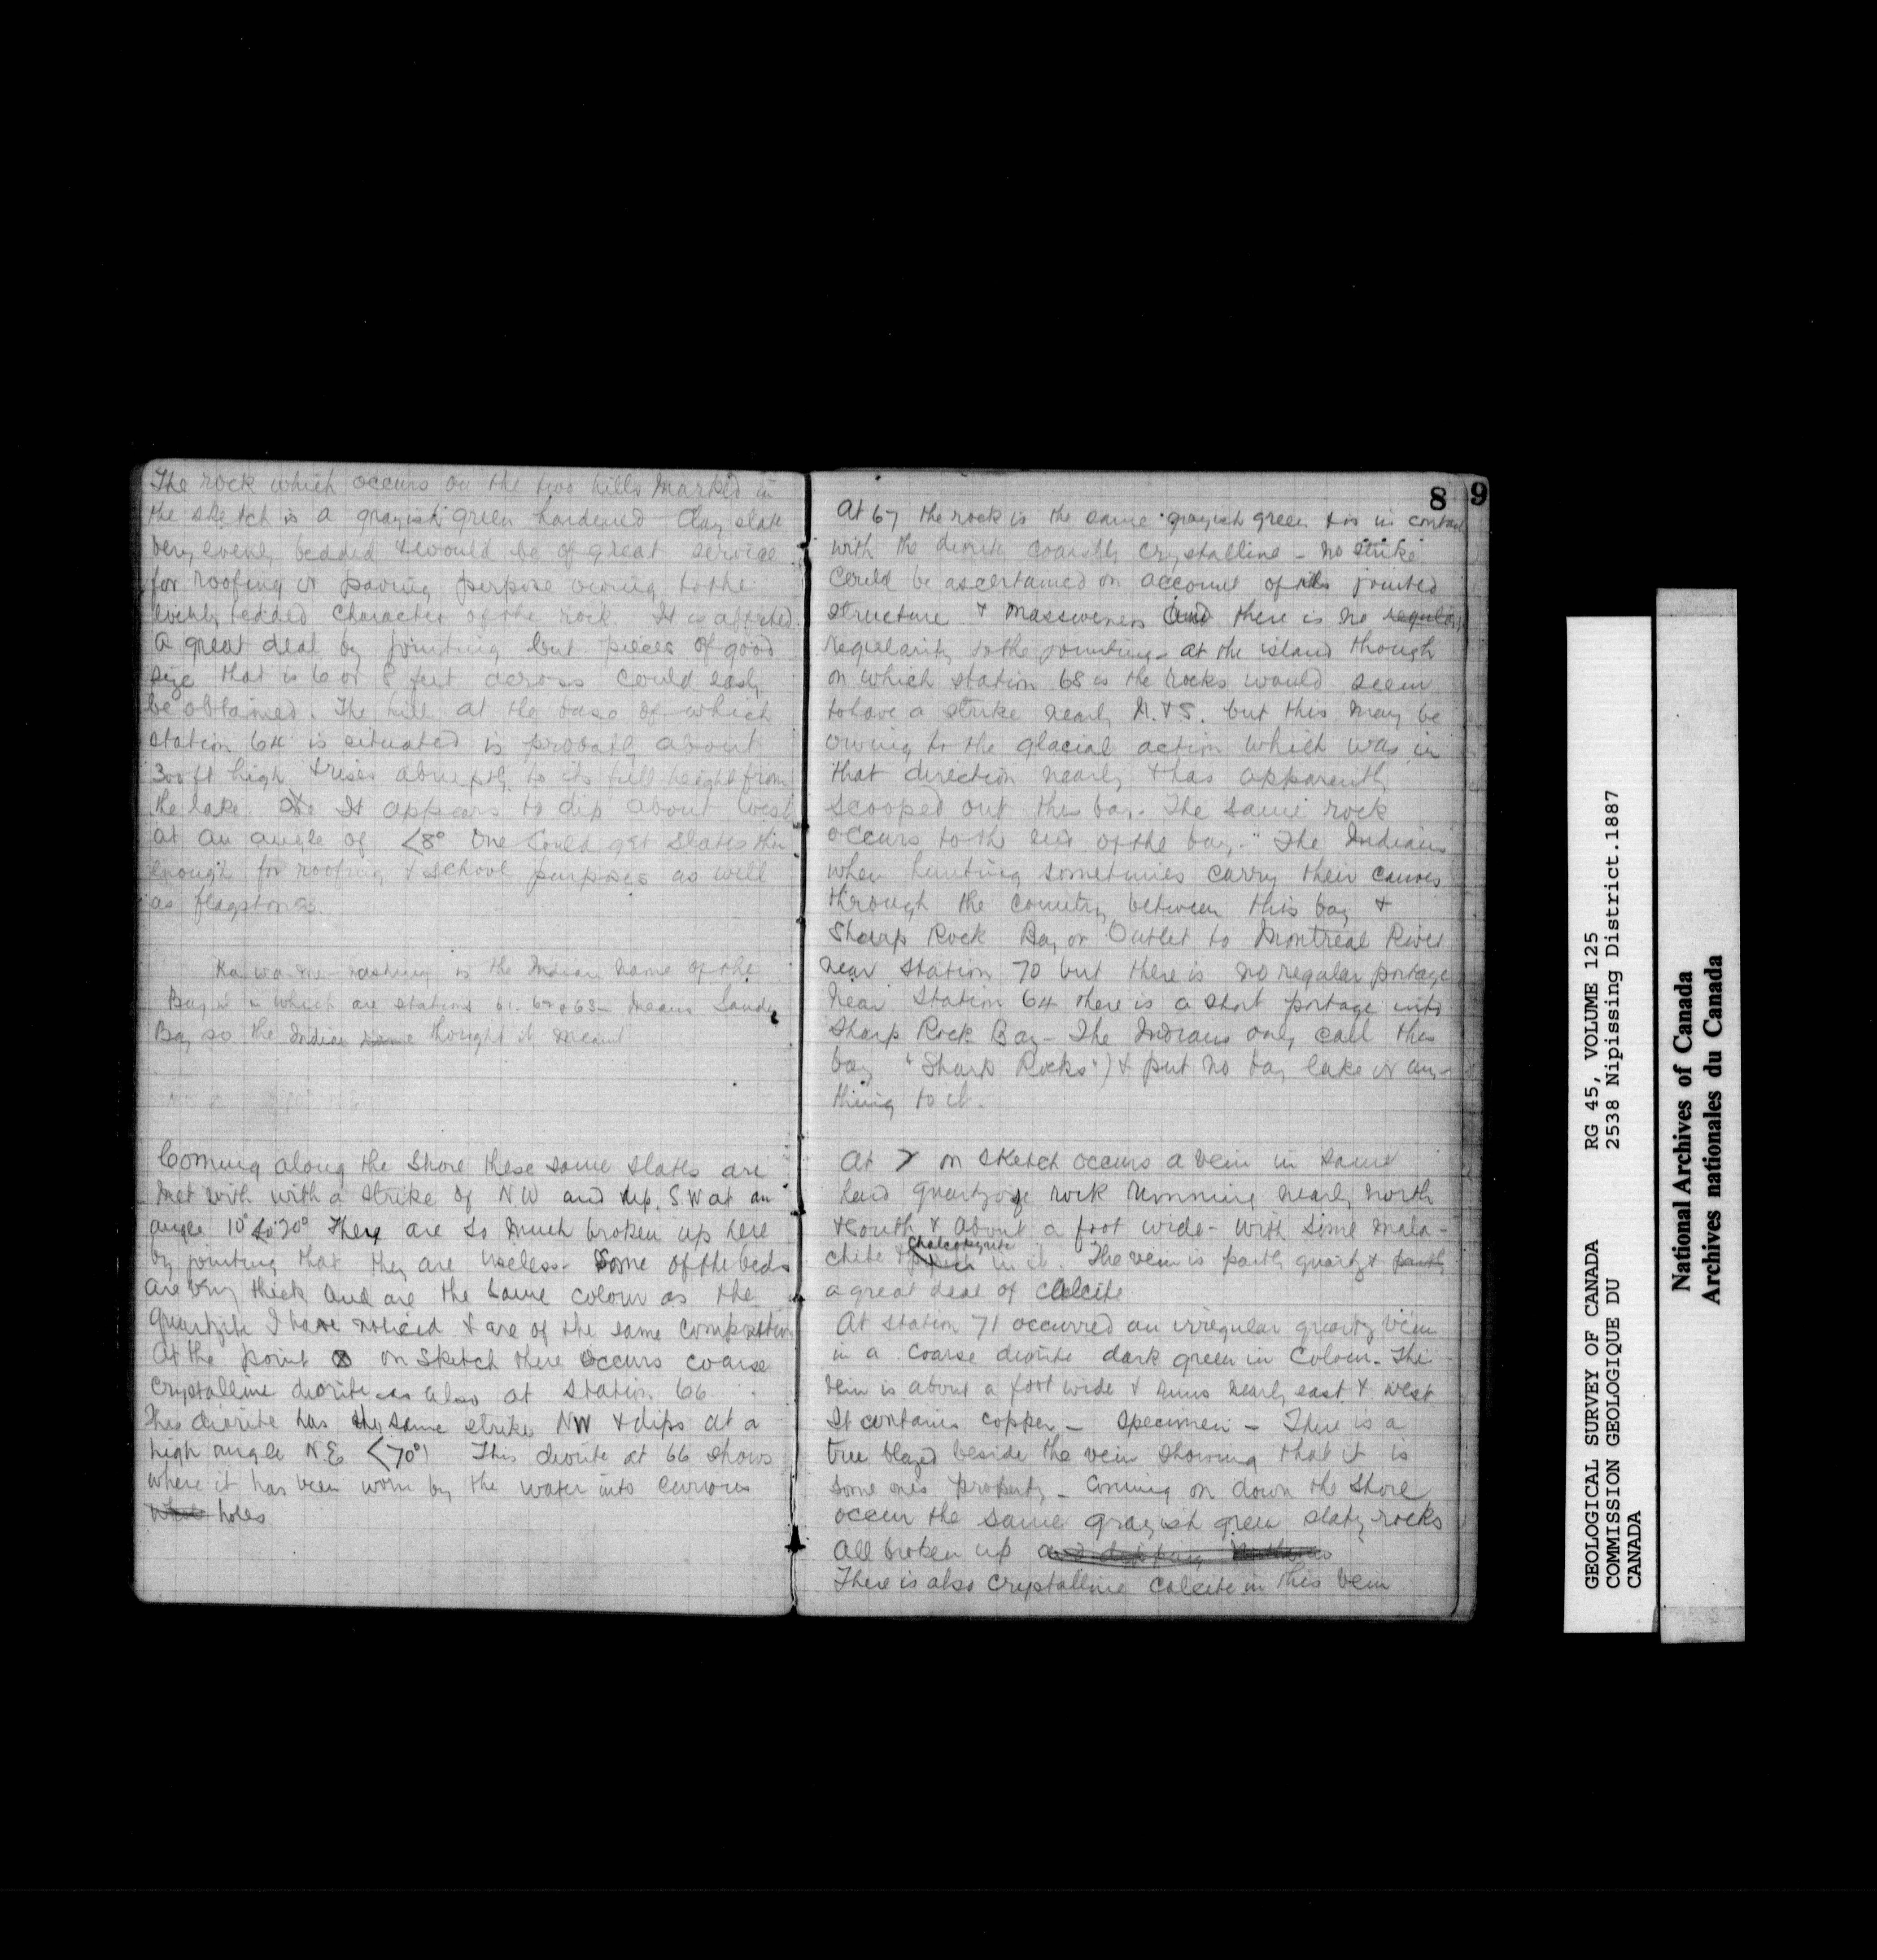 The rock which occurs on the two hills marked in
the sketch is a grayish green hardened Clay slate
very evenly bedded & would be of great service
for roofing or paving perpose owing to the
evenly bedded character of the rock It is affected
a great deal by jointing but pieces of good
size that is 6 or 8 feet across could easily
be obtained. The hill at the base of which
station 64 is situated is probably about
300 ft high & rises abruptly to its full height from
the lake. It appears to dip about west
at an angle of <8° One could get slates thin
enough for roofing & school purposes as well
as flagstones.
is the Indian name of the
Bay in which are stations 61. 62 & 63 - means Sandy
Bay so the Indian thought it meant
Coming along the shore these same slates are
met with with a strike of NW and dip. S.W at an
angle 10° to 20° They are so much broken up here
by jointing that they are useless - Some of the beds
are very thick and are the same colour as the
quartzite I have noticed & are of the same composition
At the point X on Sketch there occurs coarse
crystalline diorite as also at Station 66.
This diorite has the same strike NW & dips at a
high angle N.E <70° This diorite at 66 shows
where it has been worn by the water into curious
holes
8
9
At 67 the rock is the same grayish green & is in contact
with the diorite coarsely crystalline - no strike
could be ascertained on account of its jointed
structure & massiveness and there is no regular
regularity to the jointing - at the island though
on which station 68 is the rocks would seem
to have a strike nearly N. & S. but this may be
owing to the glacial action which was in
that direction nearly & has apparently
scooped out this bay. The same rock
occurs to the of the bay. The Indians
when hunting sometimes carry their canoes
through the country between this bay &
Sharp Rock Bay or Outlet to Montreal River
near station 70 but there is no regular portage
Near Station 64 there is a short portage into
Sharp Rock Bay - The Indians only call this
bay "Sharp Rocks") & put no bay lake or any-
thing to it.
At Y on sketch occurs a vein in same
hard quartzose rock running nearly north
& South & about a foot wide - with some mala-
chite & chalcopyrite in it. The vein is partly quartz & partly
a great deal of calcite
At station 71 occurred an irregular quartz vein
in a coarse diorite dark green in colour - The
vein is about a foot wide & runs nearly east & west
It contains copper - specimen - There is a
tree blazed beside the vein showing that it is
some ones property - Coming on down the shore
occur the same grayish green slaty rocks
all broken up and dipping
There is also crystalline calcite in this vein
GEOLOGICAL SURVEY OF CANADA RG 45, VOLUME 125
COMMISSION GEOLOGIQUE DU 2538 Nipissing District.1887
CANADA
National Archives of Canada
Archives nationales du Canada